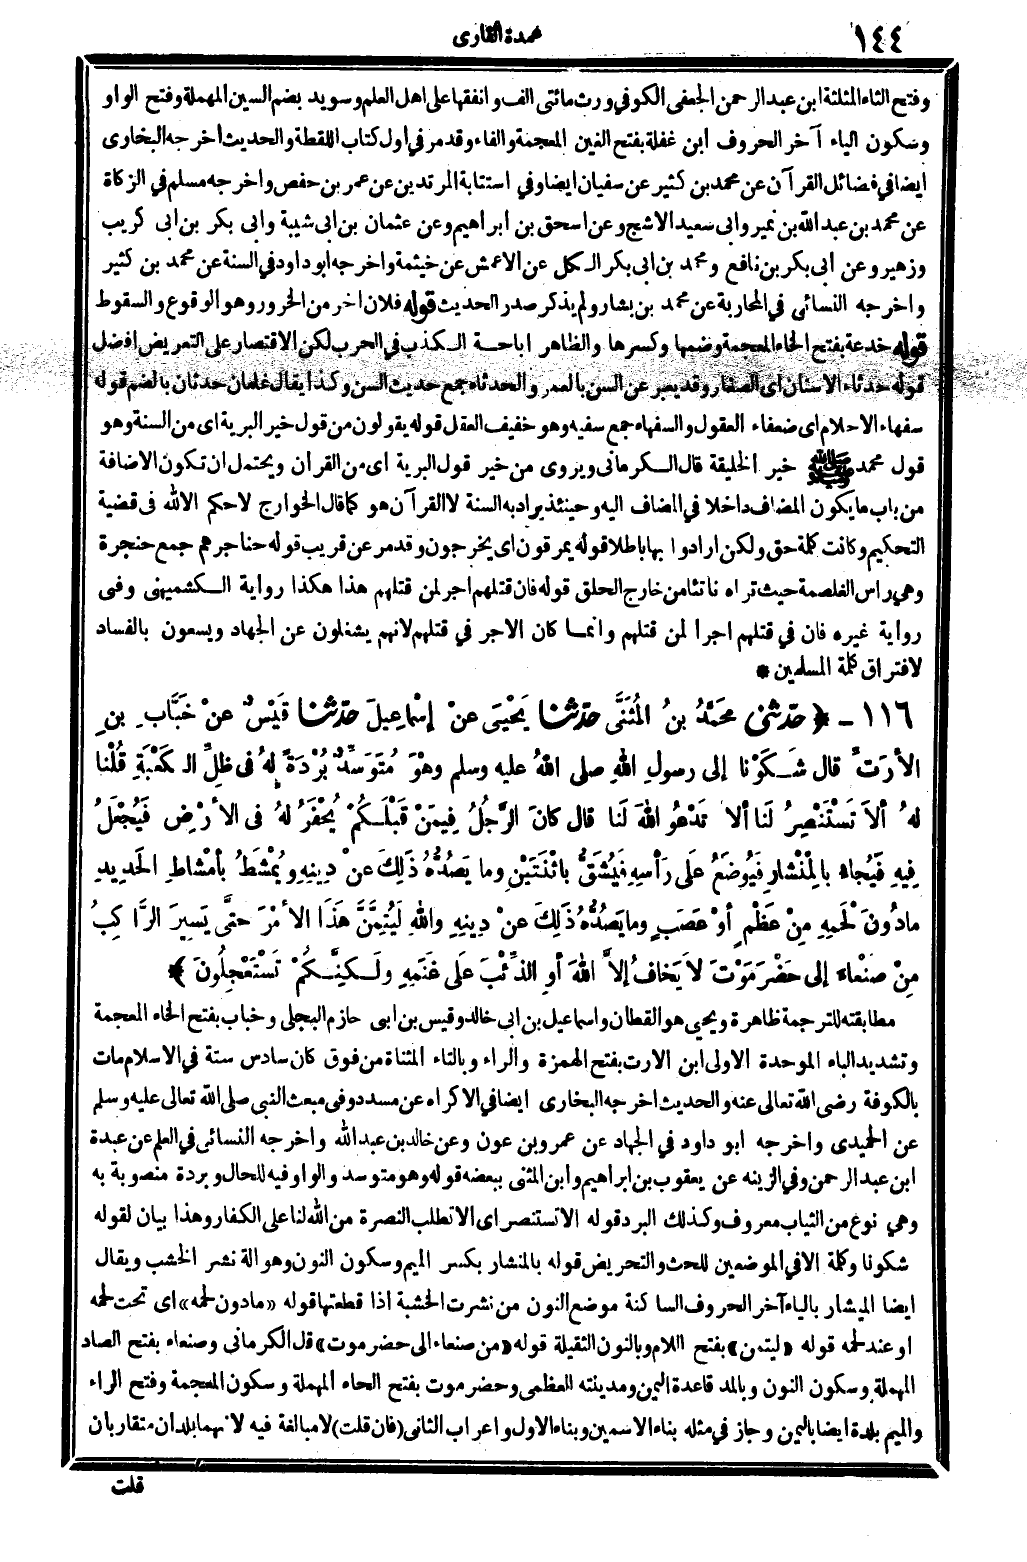 ١٤٤
عمدة القارى
وفتح الثاء المثلثة ابن عبد الرحمن الجعفى الكوفي ورث مائتى الف وانفقها على اهل العلم وسويد بضم السين المهملة وفتح الواو
وسكون الياء آخر الحروف ابن غفلة بفتح الغين المعجمة والفاء وقد مر في أول كتاب اللقطة والحديث أخرجه البخارى
ايضا في فضائل القرآن عن محمد بن كثير عن سفيان ايضا وفي استتابة المرتدين عن عمر بن حفص واخرجه مسلم في الزكاة
عن محمد بن عبد الله بن نمير وابى سعيد الاشج وعن اسحق بن ابراهيم وعن عثمان بن ابى شيبة وابى بكر بن ابى كريب
وزهير وعن ابى بكر بن نافع ومحمد بن ابى بكر الكل عن الاعمش عن خيثمة واخرجه ابو داود في السنة عن محمد بن كثير
واخرجه النسائى في المحاربة عن محمد بن بشار ولم يذكر صدر الحديث قوله فلان اخر من الخرور وهو الوقوع والسقوط
قوله خدعة بفتح الخاء المعجمة وضمها وكسرها والظاهر اباحة الكذب في الحرب لكن الاقتصار على التعريض افضل
قوله حدثاء الاسنان اى الصغار وقد يعبر عن السن بالعمر والحدثاء جمع حديث السن وكذا يقال غلمان حدثان بالضم قوله
سفهاء الاحلام اى ضعفاء العقول والسفهاء جمع سفيه وهو خفيف العقل قوله يقولون من قول خير البرية اى من السنة وهو
قول محمد ﷺ خير الخليقة قال الكرمانى ويروى من خير قول البرية اى من القرآن ويحتمل ان تكون الاضافة
من باب ما يكون المضاف داخلا في المضاف اليه وحينئذ يراد به السنة لا القرآن هو كما قال الخوارج لا حكم الا لله فى قضية
التحكيم وكانت كلمة حق ولكن ارادوا بها باطلا قوله يمرقون اى يخرجون وقد مر عن قريب قوله حناجرهم جمع حنجرة
وهي راس الغلصمة حيث تراه ناتئا من خارج الحلق قوله فان قتلهم اجر لمن قتلهم هذا هكذا رواية الكشميهنى وفى
رواية غيره فان في قتلهم اجرا لمن قتلهم وانما كان الاجر في قتلهم لانهم يشغلون عن الجهاد ويسعون بالفساد
لافتراق كلمة المسلمين *
١١٦ - ﴿ حدثنى محَمَّدُ بنُ المُثَنَّى حدّثنا يَحْيَى عنْ إسْماعِيلَ حدّثنا قَيْسٌ عنْ خَبَّابِ بنِ
الأرَتِّ قال شَكَوْنا إلى رسولِ اللهِ صلى اللهُ عليه وسلم وهْوَ مُتَوَسِّدٌ بُرْدَةً لهُ فى ظِلِّ الكَعْبَةِ قُلْنا
لهُ ألاَ تَسْتَنْصِرُ لَنا ألا تَدْعُو اللهَ لَنا قال كانَ الرَّجُلُ فِيمَنْ قَبْلَكُمْ يُحْفَرُ لهُ فى الأرْضِ فَيُجْعَلُ
فِيهِ فَيُجاءُ بالمِنْشارِ فَيُوضَعُ على رَأْسِهِ فَيُشَقُّ باثْنَتَيْنِ وما يَصُدُّهُ ذَلِكَ عنْ دِينِهِ ويُمْشَطُ بأمْشاطِ الحَدِيدِ
مادُونَ لَحْمِهِ مِنْ عَظْمٍ أوْ عَصَبٍ وما يَصُدُّهُ ذَلِكَ عنْ دِينِهِ واللهِ لَيُتِمَّنَّ هَذَا الأمْرَ حتَّى يَسِيرَ الرَّاكِبُ
مِنْ صَنْعاءَ إلى حَضْرَمَوْتَ لاَ يَخافُ إلاَّ اللهَ أو الذِّئْبَ عَلَى غَنَمِهِ ولَكِنَّكُمْ تَسْتَعْجِلُونَ ﴾
مطابقته للترجمة ظاهرة ويحيى هو القطان واسماعيل بن ابي خالد وقيس بن ابى حازم البجلى وخباب بفتح الخاء المعجمة
وتشديد الباء الموحدة الاولى ابن الارت بفتح الهمزة والراء وبالتاء المثناة من فوق كان سادس ستة في الاسلام مات
بالكوفة رضى الله تعالى عنه والحديث اخرجه البخارى ايضا في الاكراه عن مسدد وفى مبعث النبى صلى الله تعالى عليه وسلم
عن الحميدى واخرجه ابو داود في الجهاد عن عمرو بن عون وعن خالد بن عبد الله واخرجه النسائى في العلم عن عبدة
ابن عبد الرحمن وفي الزينه عن يعقوب بن ابراهيم وابن المثنى ببعضه قوله وهو متوسد والواو فيه للحال وبردة منصوبة به
وهي نوع من الثياب معروف وكذلك البرد قوله الا تستنصر اى الا تطلب النصرة من الله لنا على الكفار وهذا بيان لقوله
شكونا وكلمة الا في الموضعين للحث والتحريض قوله بالمنشار بكسر الميم وسكون النون وهو الة نشر الخشب ويقال
ايضا الميشار بالياء آخر الحروف الساكنة موضع النون من نشرت الخشبة اذا قطعتها قوله «مادون لحمه» اى تحت لحمه
او عند لحمه قوله «ليتمن» بفتح اللام وبالنون الثقيلة قوله «من صنعاء الى حضرموت» قال الكرمانى وصنعاء بفتح الصاد
المهملة وسكون النون وبالمد قاعدة اليمن ومدينته العظمى وحضرموت بفتح الحاء المهملة وسكون المعجمة وفتح الراء
والميم بلدة ايضا باليمن وجاز في مثله بناء الاسمين وبناء الاول واعراب الثانى (فان قلت) لا مبالغة فيه لانهما بلدان متقاربان
قلت